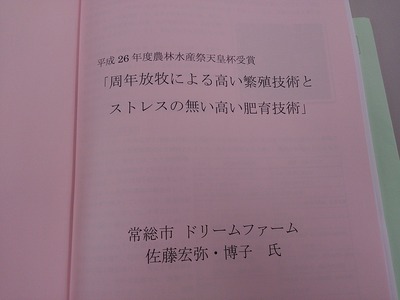 平成 26 年度農林水産祭天皇杯受賞
「周年放牧による高い繁殖技術と
ストレスの無い高い肥育技術」
常総市 ドリームファーム
佐藤宏弥・博子 氏